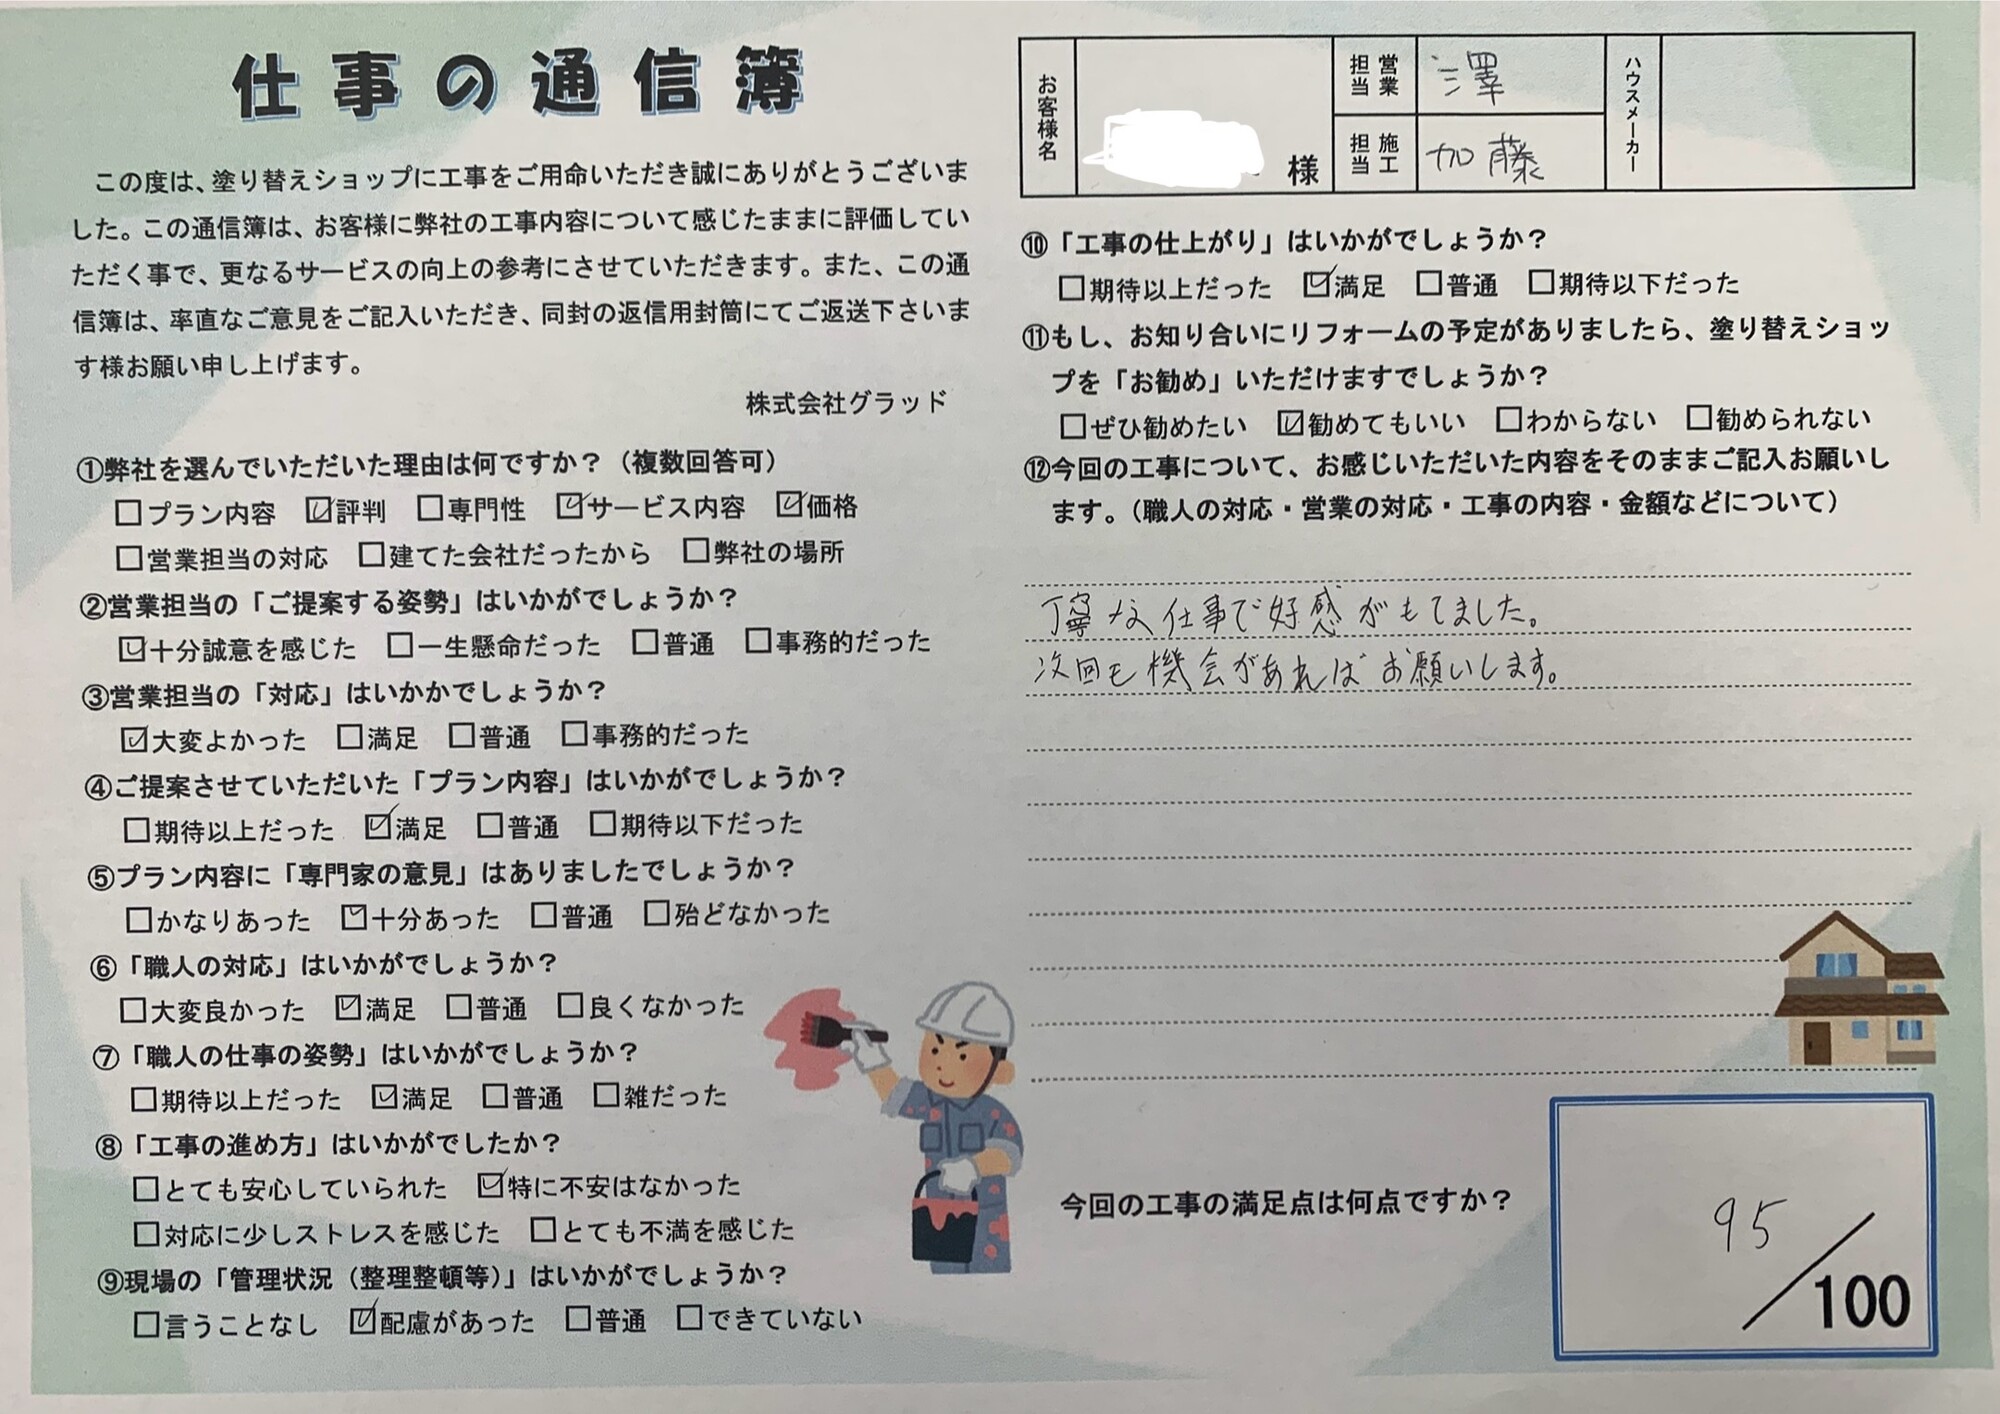 仕事の通信簿
この度は、塗り替えショップに工事をご用命いただき誠にありがとうございま
した。この通信簿は、お客様に弊社の工事内容について感じたままに評価してい
ただく事で、更なるサービスの向上の参考にさせていただきます。また、この通
信簿は、率直なご意見をご記入いただき、同封の返信用封筒にてご返送下さいま
す様お願い申し上げます。
株式会社グラッド
①弊社を選んでいただいた理由は何ですか？（複数回答可）
□プラン内容 ☑評判 □専門性 ☑サービス内容 ☑価格
□営業担当の対応 □建てた会社だったから □弊社の場所
②営業担当の「ご提案する姿勢」はいかがでしょうか？
☑十分誠意を感じた □一生懸命だった □普通 □事務的だった
③営業担当の「対応」はいかかでしょうか？
☑大変よかった □満足 □普通 □事務的だった
④ご提案させていただいた「プラン内容」はいかがでしょうか？
□期待以上だった ☑満足 □普通 □期待以下だった
⑤プラン内容に「専門家の意見」はありましたでしょうか？
□かなりあった ☑十分あった □普通 □殆どなかった
⑥「職人の対応」はいかがでしょうか？
□大変良かった ☑満足 □普通 □良くなかった
⑦「職人の仕事の姿勢」はいかがでしょうか？
□期待以上だった ☑満足 □普通 □雑だった
⑧「工事の進め方」はいかがでしたか？
□とても安心していられた ☑特に不安はなかった
□対応に少しストレスを感じた □とても不満を感じた
⑨現場の「管理状況（整理整頓等）」はいかがでしょうか？
□言うことなし ☑配慮があった □普通 □できていない
お客様名
様
営業担当
澤
施工担当
加藤
ハウスメーカー
⑩「工事の仕上がり」はいかがでしょうか？
□期待以上だった ☑満足 □普通 □期待以下だった
⑪もし、お知り合いにリフォームの予定がありましたら、塗り替えショッ
プを「お勧め」いただけますでしょうか？
□ぜひ勧めたい ☑勧めてもいい □わからない □勧められない
⑫今回の工事について、お感じいただいた内容をそのままご記入お願いし
ます。（職人の対応・営業の対応・工事の内容・金額などについて）
丁寧な仕事で好感がもてました。
次回も機会があればお願いします。
今回の工事の満足点は何点ですか？
95/100